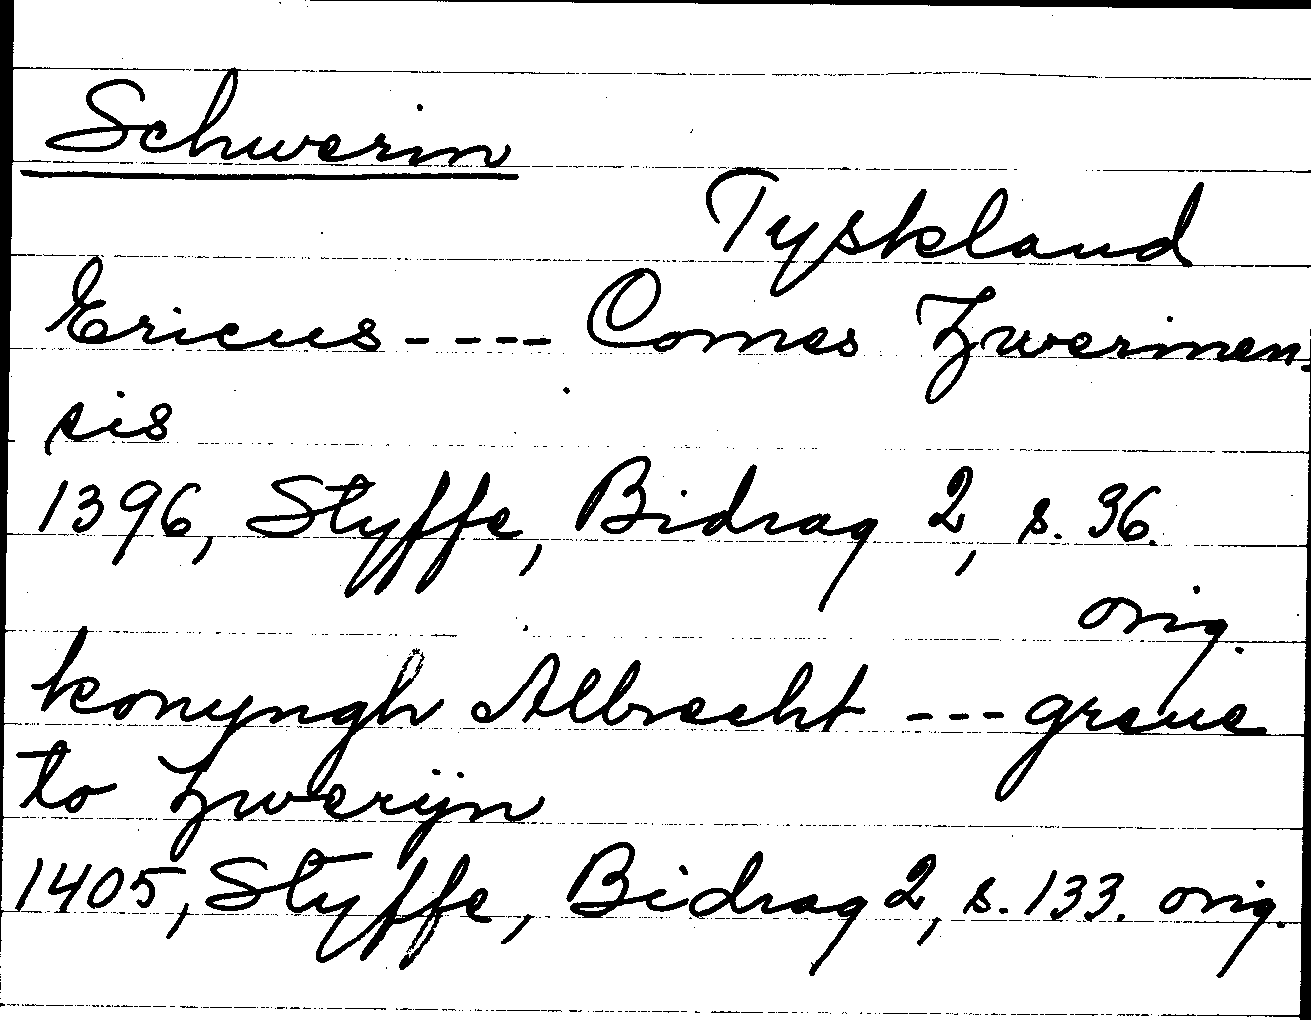 Schwerin
Tyskland
Ericus - - - - Comes Zwerinen-
sis
1396, Styffe, Bidrag 2, s. 36.
orig.
konyngh Albrecht - - - greue
to Zwerijn
1405, Styffe, Bidrag 2, s. 133. orig.